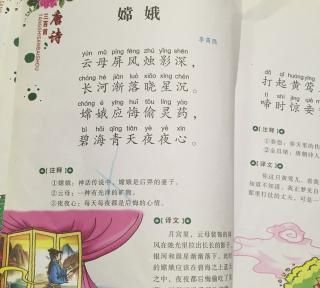 唐诗
三百首
TANGSHISANBAISHOU
嫦娥
李商隐
yún mǔ píng fēng zhú yǐng shēn
云母屏风烛影深，
cháng hé jiàn luò xiǎo xīng chén
长河渐落晓星沉。
cháng é yīng huǐ tōu líng yào
嫦娥应悔偷灵药，
bì hǎi qīng tiān yè yè xīn
碧海青天夜夜心。
【注释】
①嫦娥：神话传说中，嫦娥是后羿的妻子。
②云母：一种有光泽的矿物。
③夜夜心：每天每夜都是后悔的心情。
【译文】
月宫里，云母装饰的屏
风在烛光里拉出长长的影子，
银河和晨星渐渐落下。此时
的嫦娥应该在碧海之上蓝天
之中，夜夜都后悔偷吃了
dǎ qǐ huáng yīng
打起黄莺
tí shí jīng qiè
啼时惊妾
【注释】
【译文】